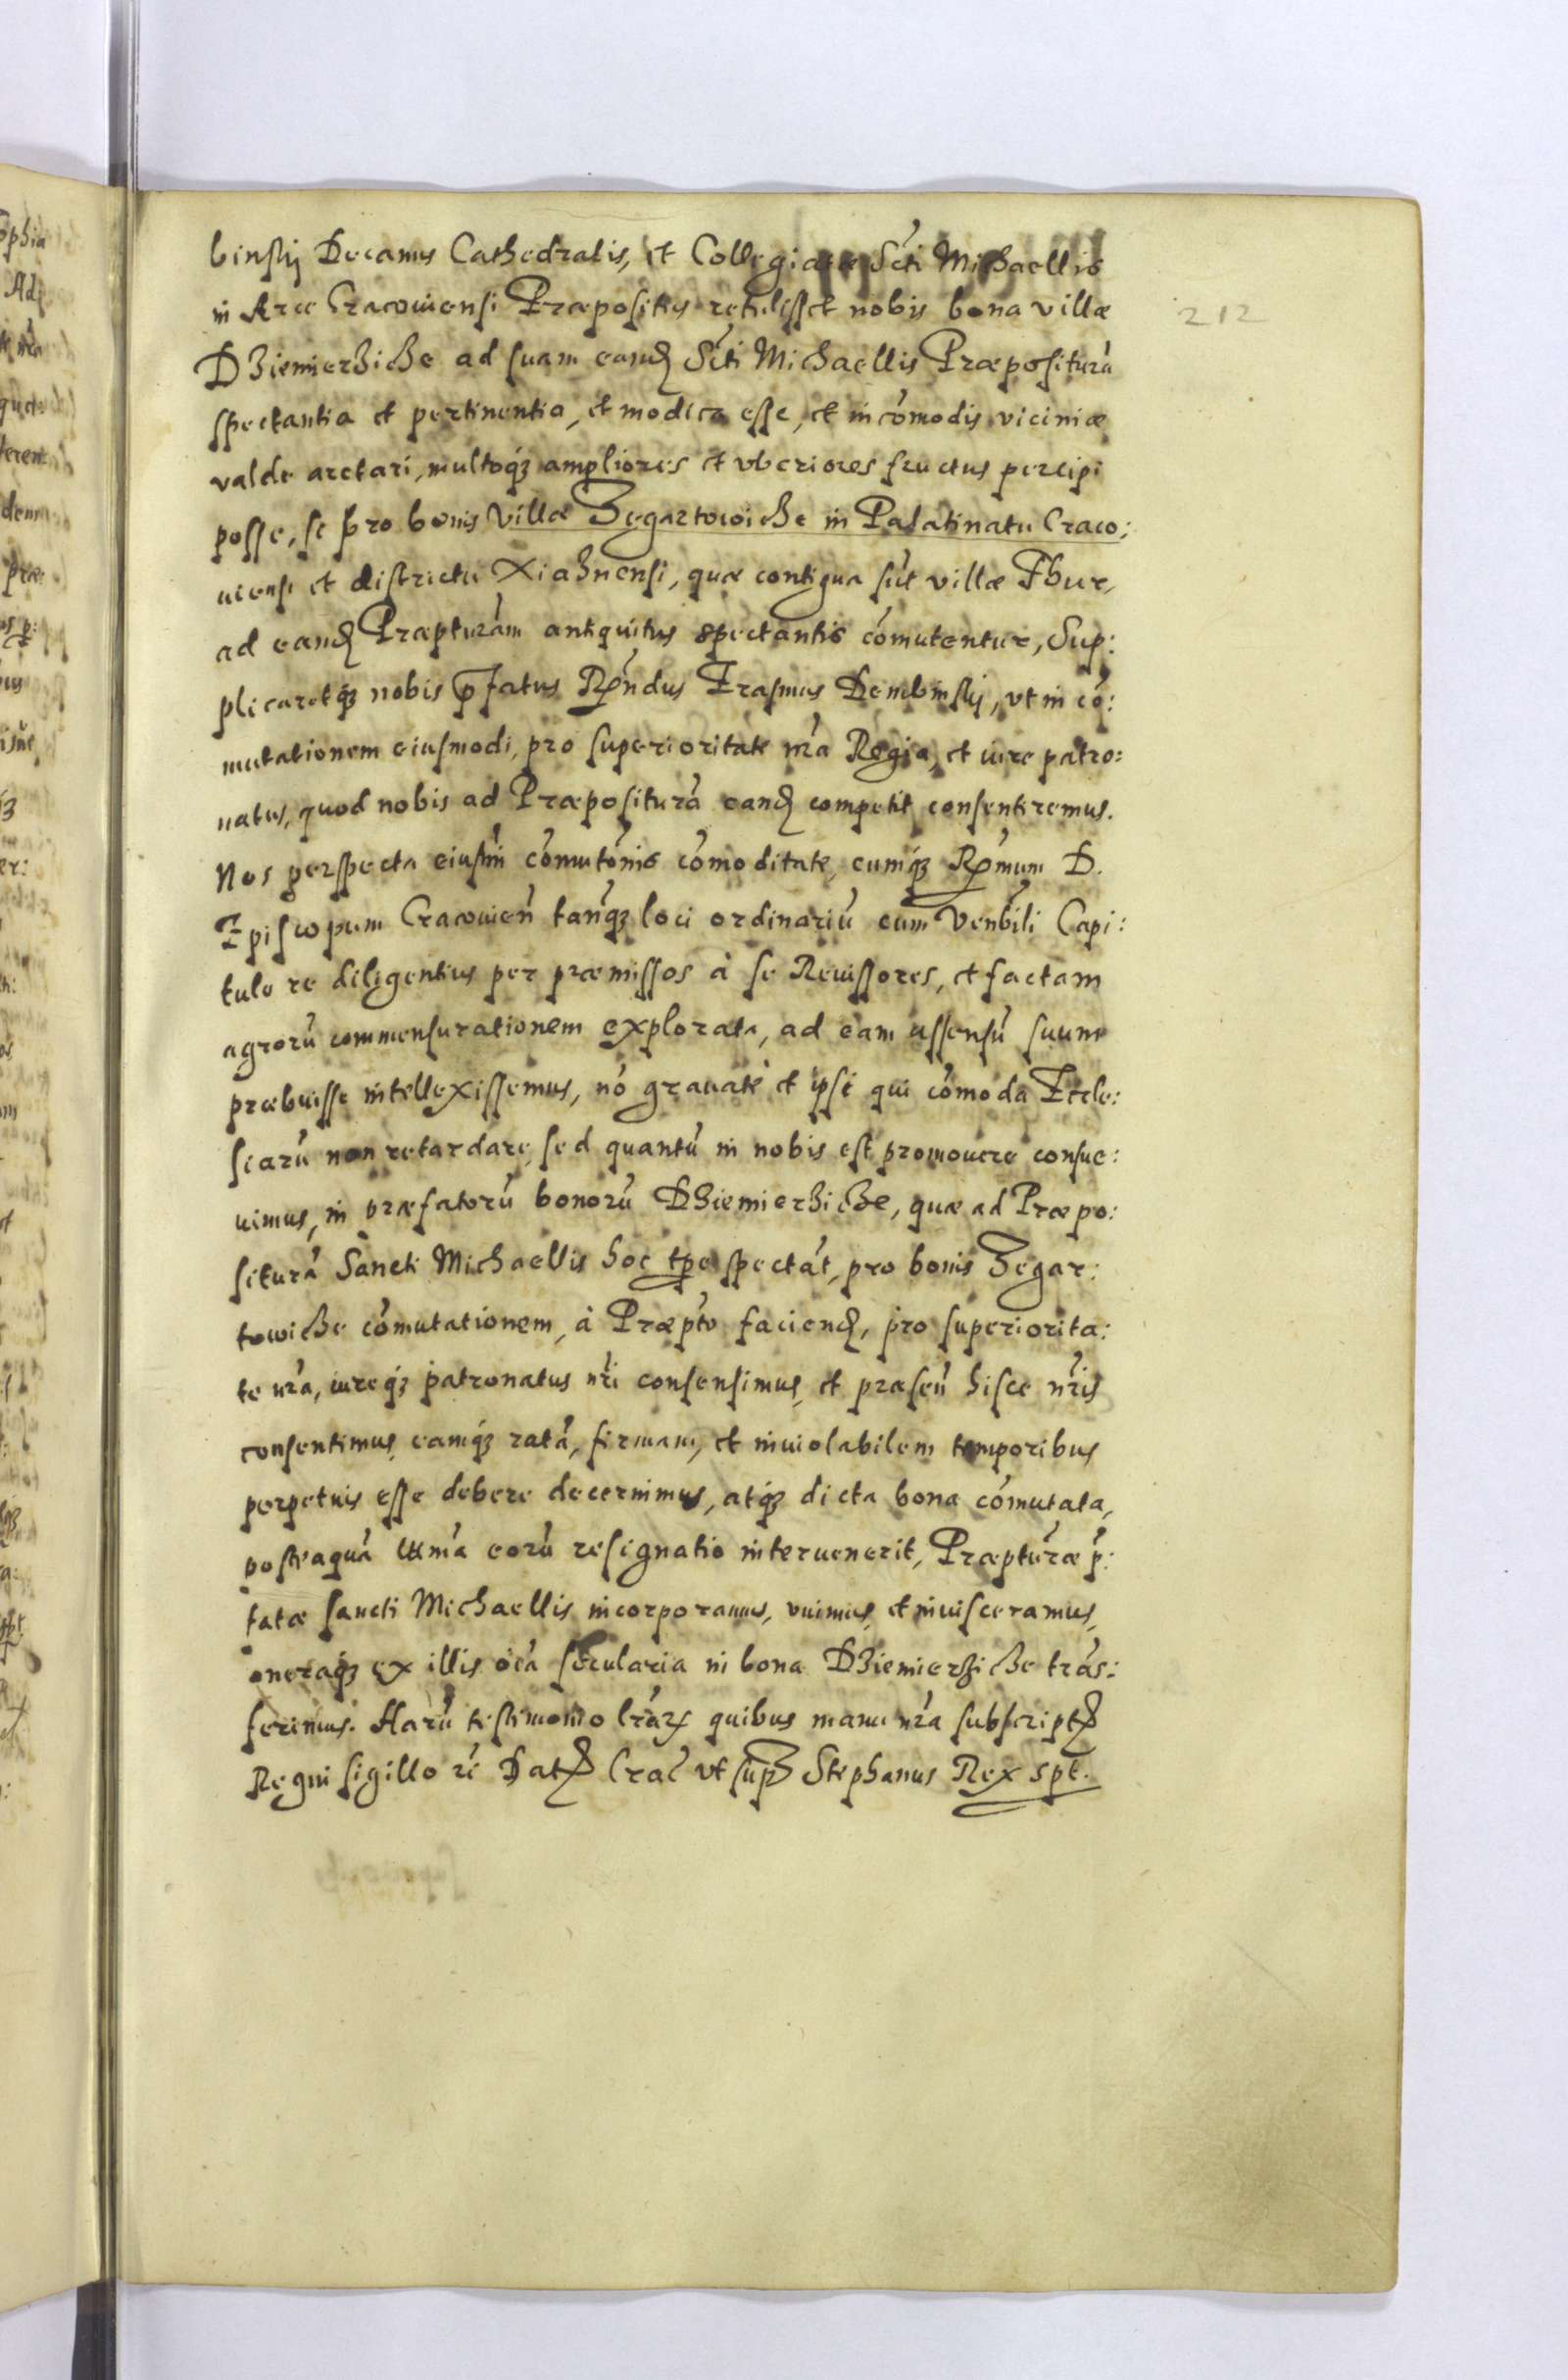 binskÿ Decanus Cathedralis, et Collegiatæ Scti Michaellis
in Arce Cracouiensi Præpositus retulisset nobis bona villæ
212
Dziemierziche ad suam eand Scti Michaellis Præpositurã
spectantia et pertinentia, et modica esse, et incõmodis viciniæ
valde arctari, multoqz ampliores et vberiores fructus percipi
posse, si pro bonis villæ Zegartowiche in Palatinatu Craco:
uiensi et districtu Xiaznensi, quæ contigua sũt villæ Thur,
ad eand Præpturam antiquitus spectantis cõmutentur, Sup:
plicaretqz nobis p̃fatus Rñdus Erasmus Dembinskÿ, vt in cõ:
mutationem eiusmodi, pro superioritate nr̃a Regia, et iure patro:
natus, quod nobis ad Præpositurã eand competit consentiremus.
Nos perspecta eiusm̃ cõmutõnis cõmoditate, cumqz Rm̃um D.
Episcopum Cracouieñ tanqz loci ordinariũ cum Venbili Capi:
tulo re diligentius per præmissos à se Reuissores, et factam
agrorũ commensurationem explorata, ad eam assensũ suum
præbuisse intellexissemus, nõ grauatè et ipsi qui cõmoda Eccle:
siarũ non retardare, sed quantũ in nobis est promouere consue:
uimus, in præfatorũ bonorũ Dziemierziche, quæ ad Præpo:
siturã Sancti Michaellis hoc tpe spectãt, pro bonis Zegar:
towiche cõmutationem, à Præpto faciend, pro superiorita:
te nr̃a, iureqz patronatus nr̃i consensimus, et præseñ hisce nr̃is
consentimus, eamqz ratã, firmam, et inuiolabilem temporibus
perpetuis esse debere decernimus, atqz dicta bona cõmutata,
posteaquã eorũ resignatio interuenerit, Præpturæ p̃:
tatæ sancti Michaellis incorporamus, vnimus, et inuisceramus,
oneraqz ex illis oĩa sęcularia in bona Dziemierziche trãs:
ferimus. Harũ testimonio lr̃arz quibus manu nr̃a subscript
Regni sigillo rc̃ Dat Crac̃ vt sup Stephanus Rex spt.